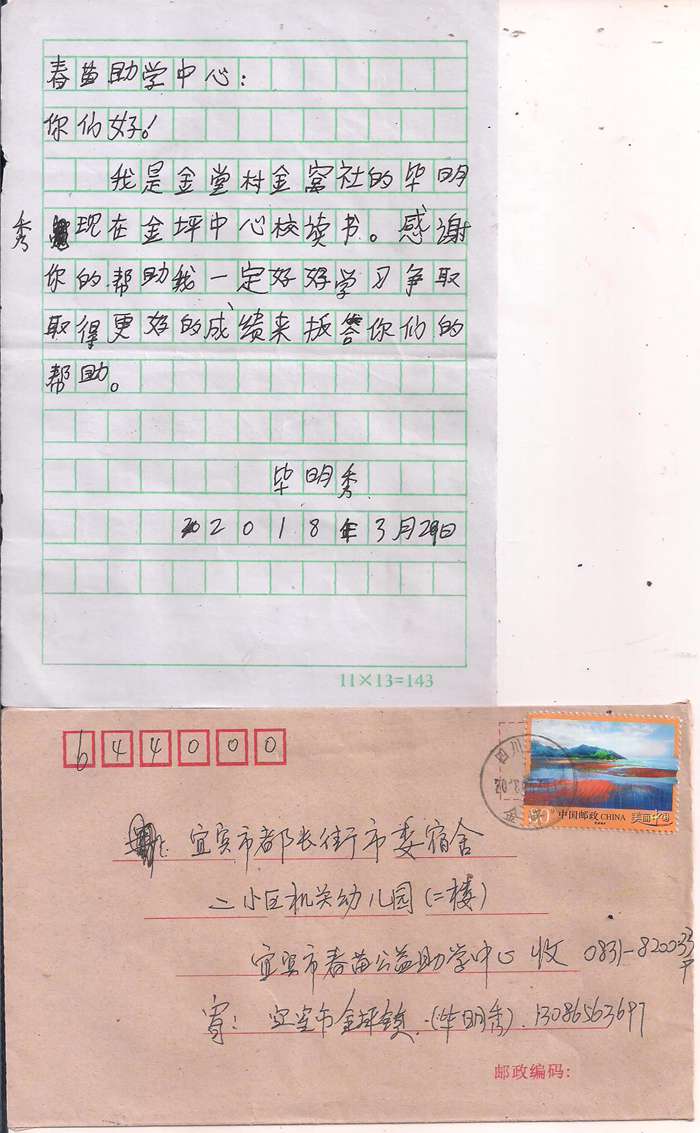 春苗助学中心:
你们好!
我是金堂村金窝社的毕明
秀现在金坪中心校读书。感谢
你的帮助我一定好好学习争取
取得更好的成绩来报答你们的
帮助。
毕明秀
2018年3月29日
11×13=143
644000
中国邮政 CHINA 美丽中国
宜宾市都长街市委宿舍
二小区机关幼儿园(二楼)
宜宾市春苗公益助学中心 收 0831-8200
寄: 宜宾市金坪镇.(毕明秀).13086563697
邮政编码: